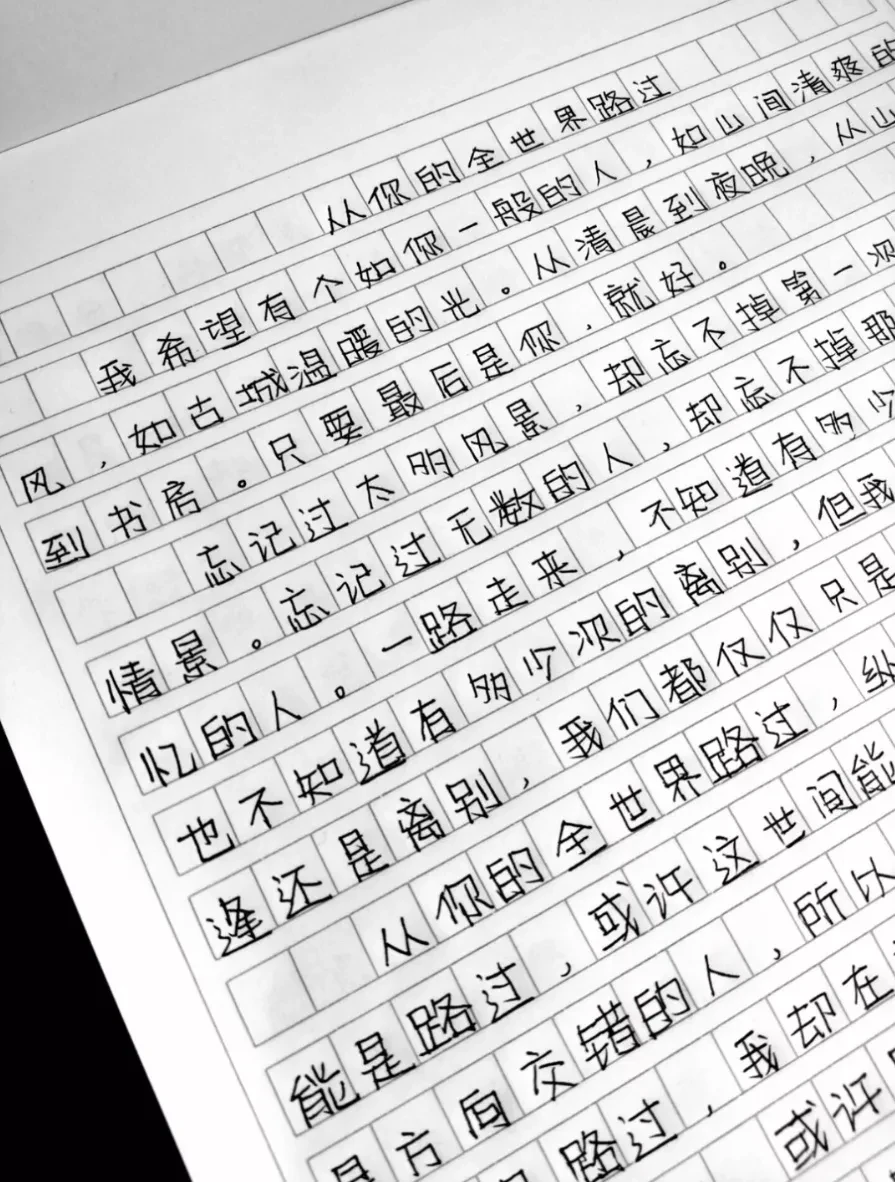 从你的全世界路过
我希望有个如你一般的人，如山间清爽的
风，如古城温暖的光。从清晨到夜晚，从山
到书房。只要最后是你，就好。
忘记过太明风景，却忘不掉第一次
情景。忘记过无数的人，却忘不掉那
忆的人。一路走来，不知道有多少
也不知道有多少次的离别，但我
逢还是离别，我们都仅仅只是
从你的全世界路过，纵
能是路过，或许这世间能
是方向交错的人，所以
路过，我却在
或许